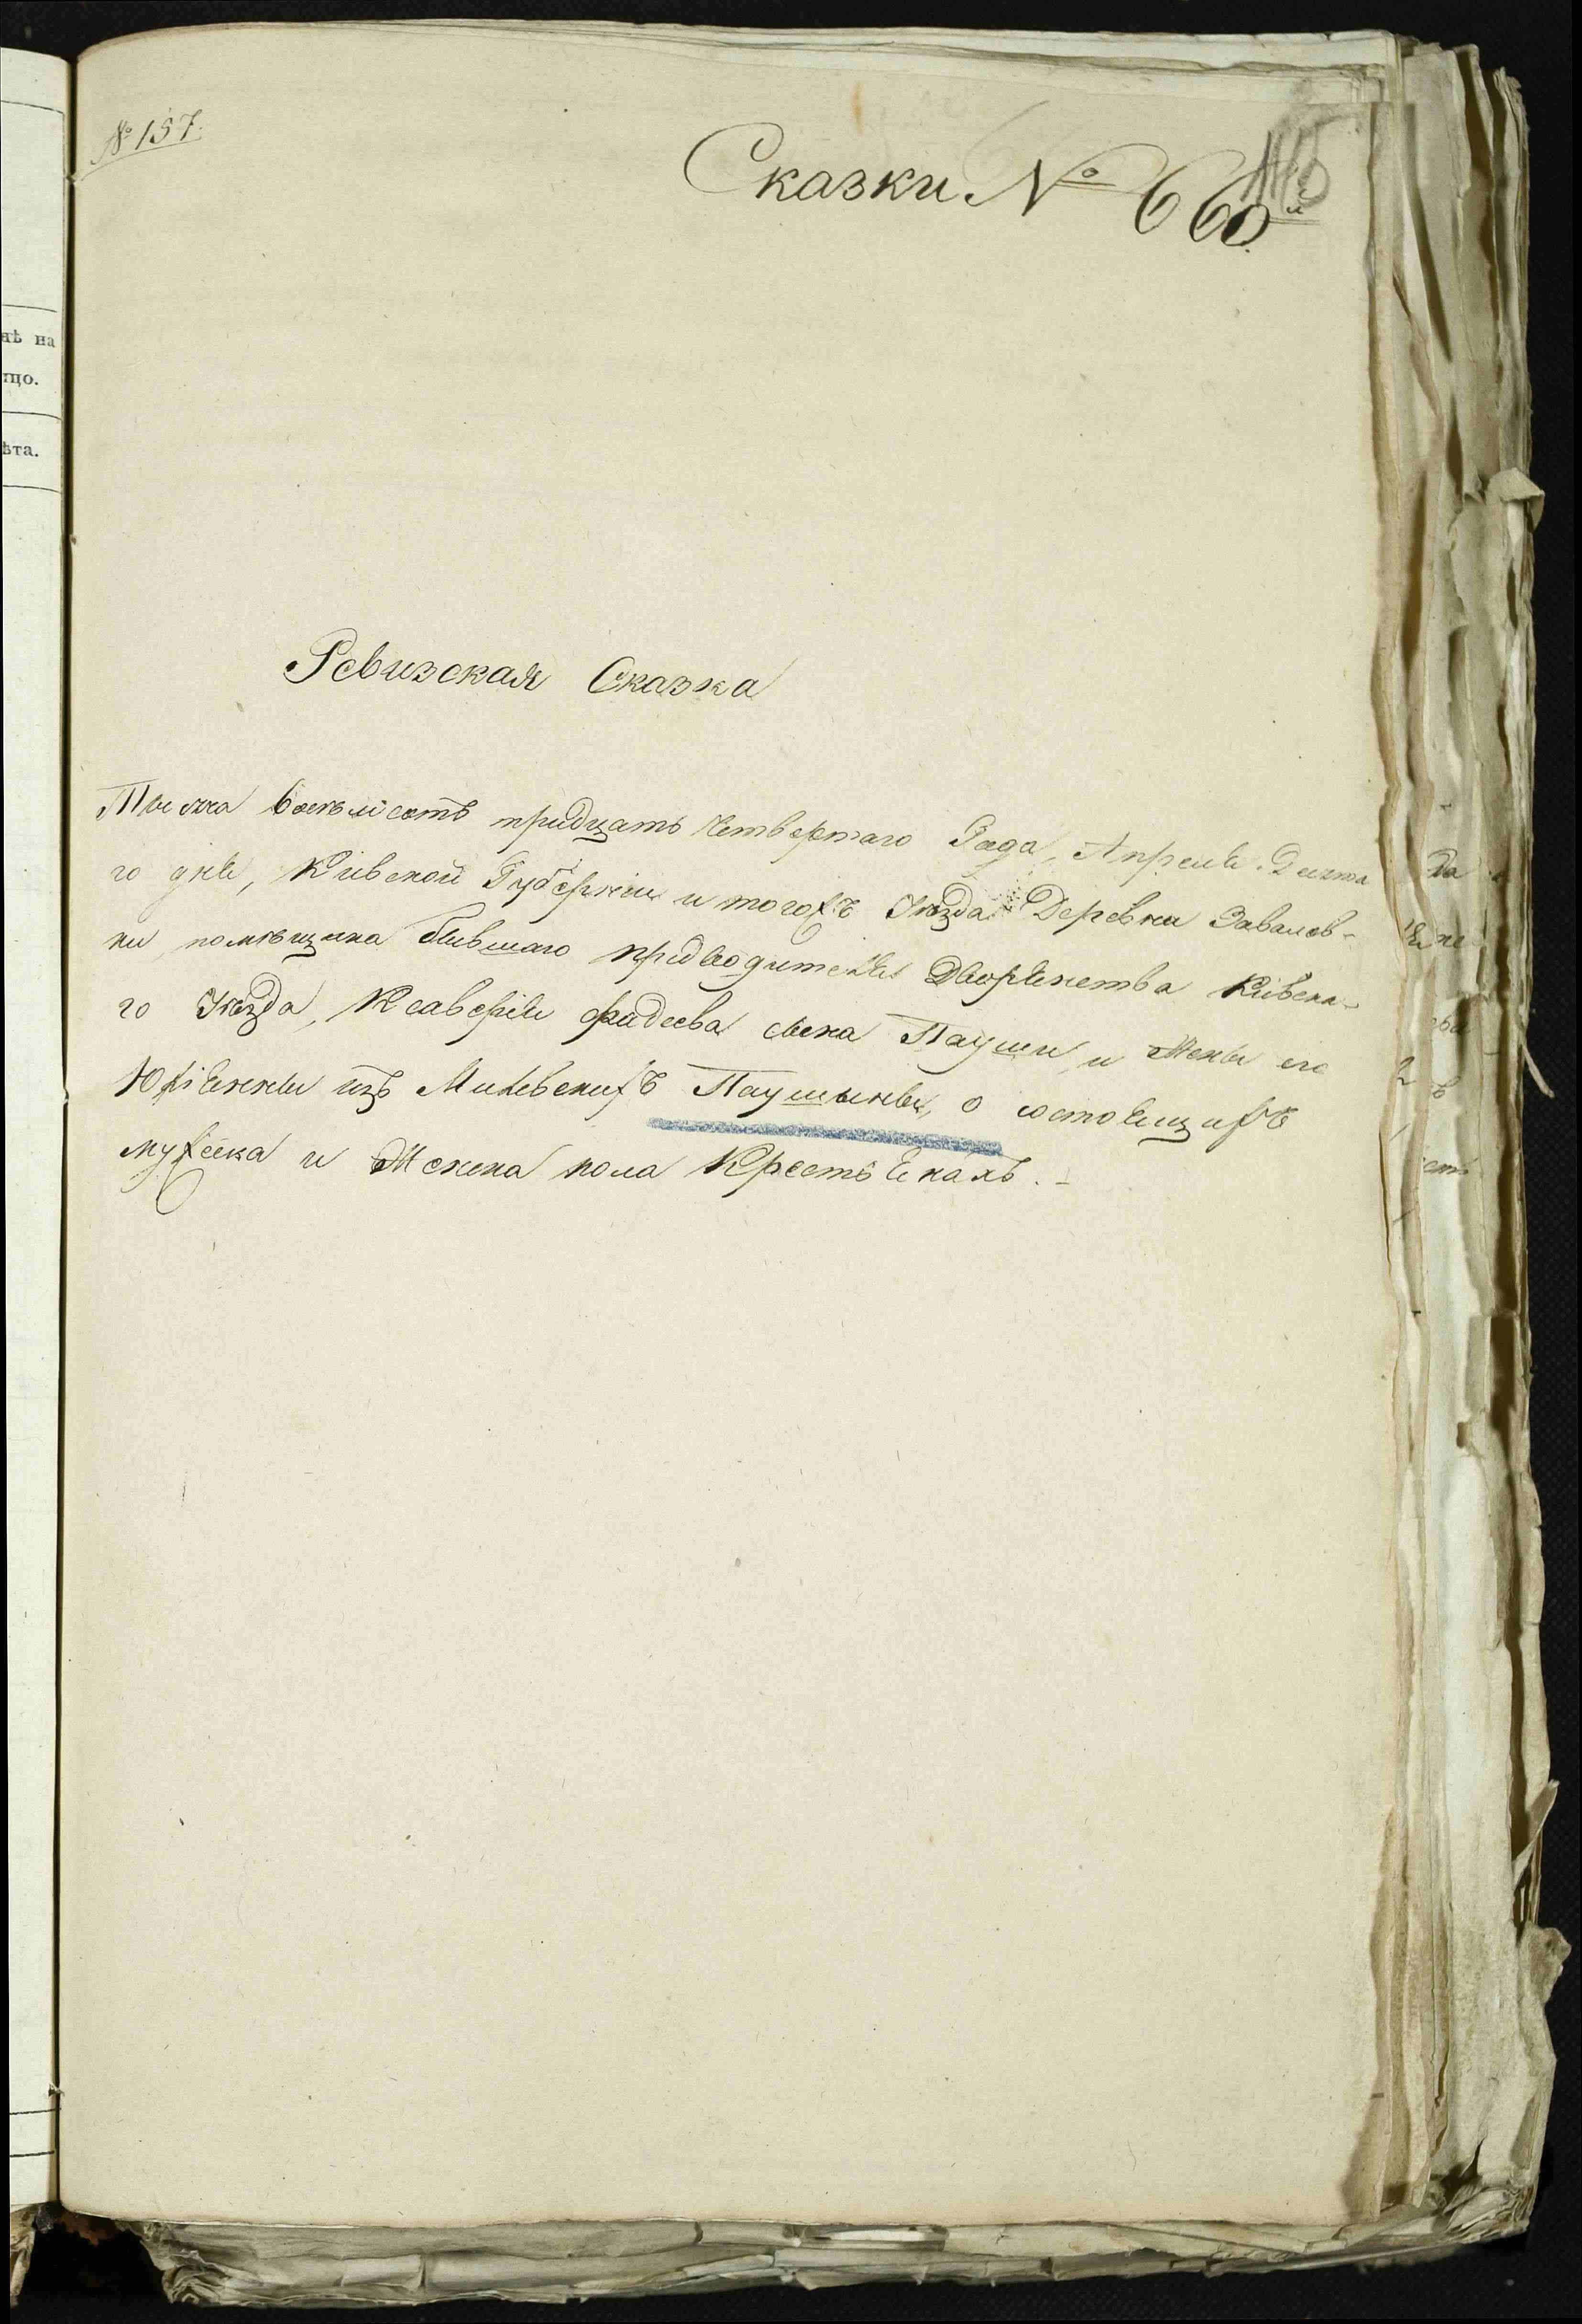 № 157.
Сказки № 660й
нѣ на
цо.
ѣта.
Ревизская Сказка
Тысяча восемьсотъ тридцать четвертаго Года, Апреля Десята
го дня, Кіевской Губерніи и тогожъ Уѣзда Деревни Завалов-
ки, помѣщика бывшаго предводителя Дворянства Кіевска-
го Уѣзда, Ксаверія Фадеева сына Пауши, и Жены его
Юліянны изъ Милевскихъ Паушыны, о состоящихъ
мужеска и Женска пола Крестьянахъ.